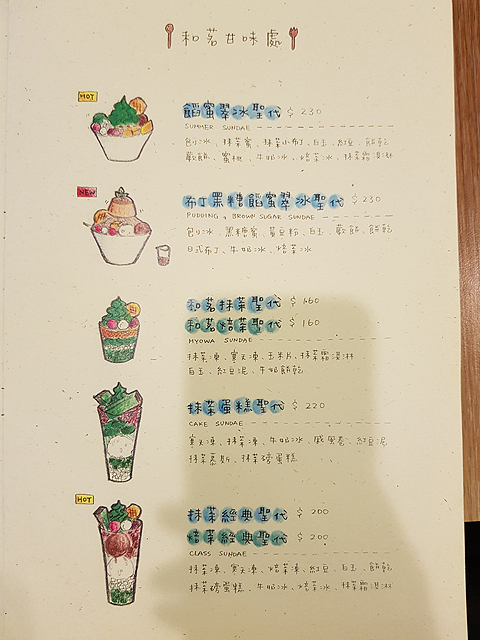 和茗甘味處
HOT
餡蜜翠冰聖代 $230
SUMMER SUNDAE
刨冰、抹茶蜜、抹茶小布丁、白玉、紅豆、餅乾
蕨餅、蜜桃、牛奶冰、焙茶冰、抹茶霜淇淋
NEW
布丁黑糖餡蜜翠冰聖代 $230
PUDDING & BROWN SUGAR SUNDAE
刨冰、黑糖蜜、黃豆粉、白玉、蕨餅、餅乾
日式布丁、牛奶冰、焙茶冰
和茗抹茶聖代 $160
和茗焙茶聖代 $160
MYOWA SUNDAE
抹茶凍、寒天凍、玉米片、抹茶霜淇淋
白玉、紅豆泥、牛奶餅乾
抹茶蛋糕聖代 $220
CAKE SUNDAE
寒天凍、抹茶凍、牛奶冰、戚風卷、紅豆泥
抹茶慕斯、抹茶磅蛋糕
HOT
抹茶經典聖代 $200
焙茶經典聖代 $200
CLASS SUNDAE
抹茶凍、寒天凍、焙茶凍、紅豆、白玉、餅乾
抹茶磅蛋糕、牛奶冰、焙茶冰、抹茶霜淇淋